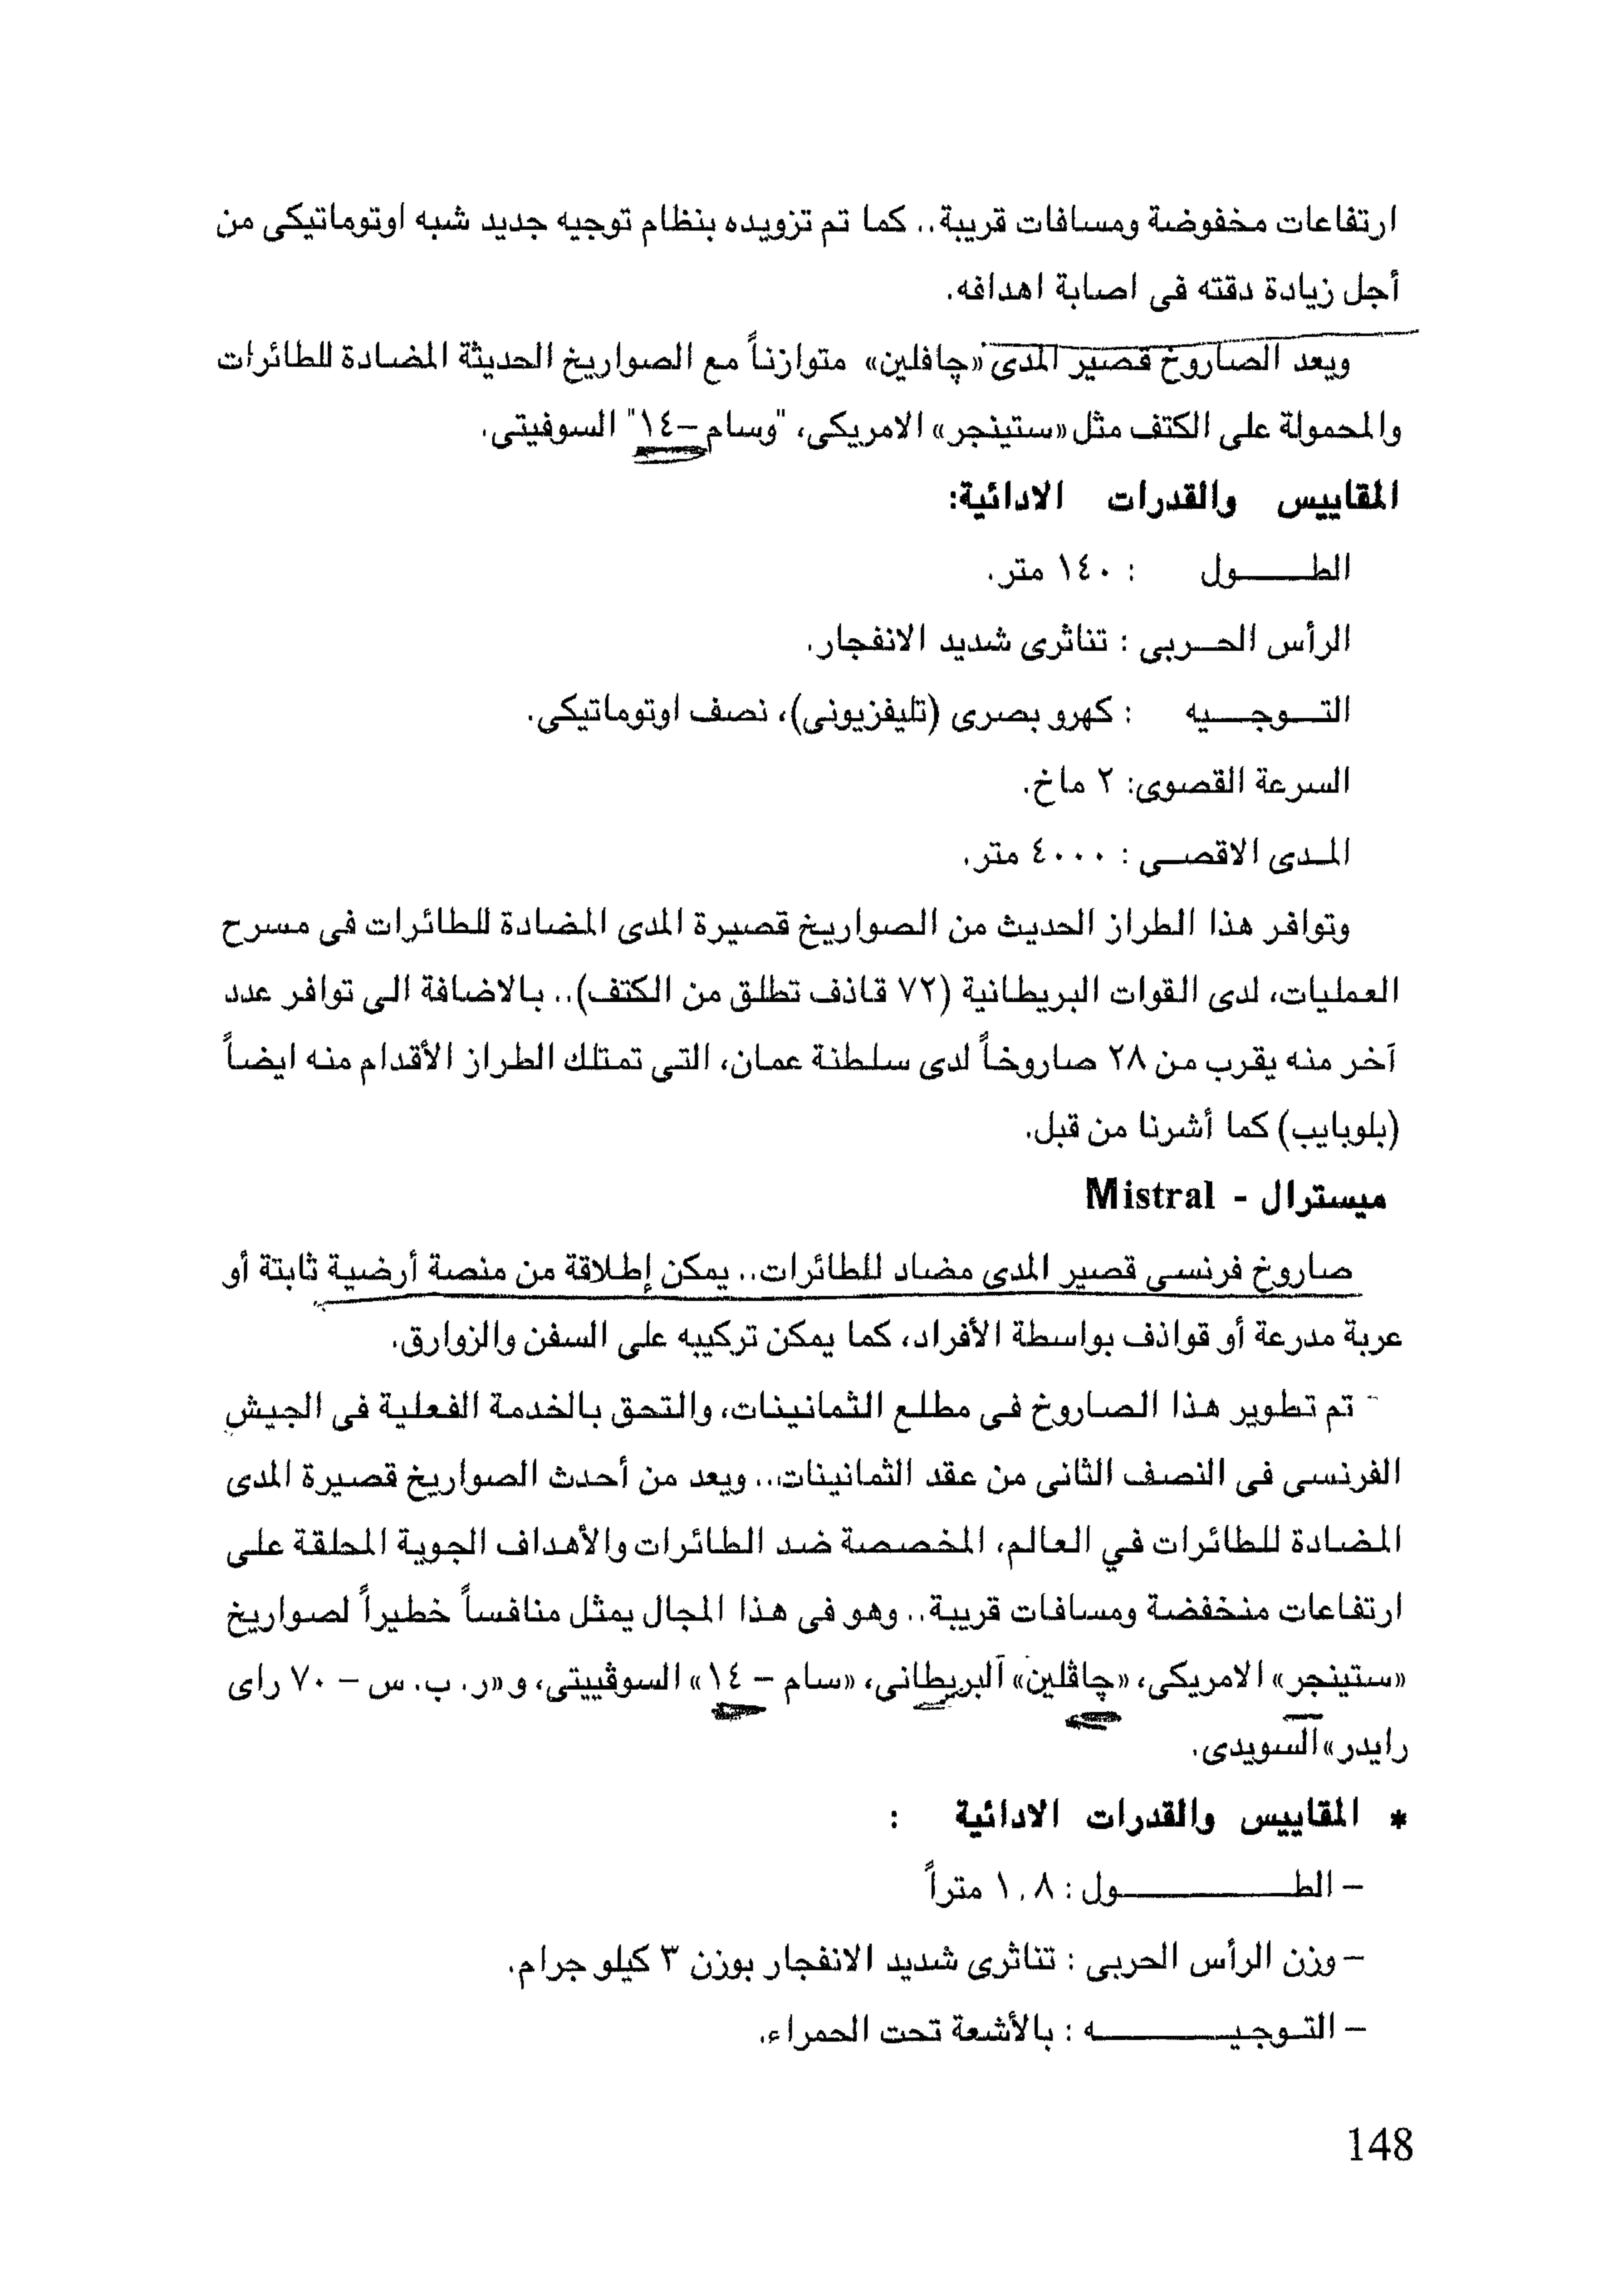 ارتفاعات مخفوضة ومسافات قريبة.. كما تم تزويده بنظام توجيه جديد شبه اوتوماتيكى من
أجل زيادة دقته فى اصابة اهدافه.
ويعد الصاروخ قصير المدى «چافلين» متوازناً مع الصواريخ الحديثة المضادة للطائرات
والمحمولة على الكتف مثل «ستينجر» الامريكى، "وسام–١٤" السوفيتى.
المقاييس والقدرات الادائية:
الطـــــول : ١٤٠ متر.
الرأس الحــربى : تناثرى شديد الانفجار.
التــوجــيه : كهرو بصرى (تليفزيونى)، نصف اوتوماتيكى.
السرعة القصوى: ٢ ماخ.
المـدى الاقصــى : ٤٠٠٠ متر.
وتوافر هذا الطراز الحديث من الصواريخ قصيرة المدى المضادة للطائرات فى مسرح
العمليات، لدى القوات البريطانية (٧٢ قاذف تطلق من الكتف).. بالاضافة الى توافر عدد
آخر منه يقرب من ٢٨ صاروخاً لدى سلطنة عمان، التى تمتلك الطراز الأقدام منه ايضاً
(بلوبايب) كما أشرنا من قبل.
ميسترال - Mistral
صاروخ فرنسى قصير المدى مضاد للطائرات.. يمكن إطلاقة من منصة أرضية ثابتة أو
عربة مدرعة أو قواذف بواسطة الأفراد، كما يمكن تركيبه على السفن والزوارق.
تم تطوير هذا الصاروخ فى مطلع الثمانينات، والتحق بالخدمة الفعلية فى الجيش
الفرنسى فى النصف الثانى من عقد الثمانينات.. ويعد من أحدث الصواريخ قصيرة المدى
المضادة للطائرات في العالم، المخصصة ضد الطائرات والأهداف الجوية المحلقة على
ارتفاعات منخفضة ومسافات قريبة.. وهو فى هذا المجال يمثل منافساً خطيراً لصواريخ
«ستينجر» الامريكى، «چاڤلين» البريطانى، «سام – ١٤» السوڤييتى، و «ر. ب. س – ٧٠ راى
رايدر» السويدى.
* المقاييس والقدرات الادائية :
– الطـــــــــــول : ١,٨ متراً
– وزن الرأس الحربى : تناثرى شديد الانفجار بوزن ٣ كيلو جرام.
– التـوجيـــــــــه : بالأشعة تحت الحمراء.
148